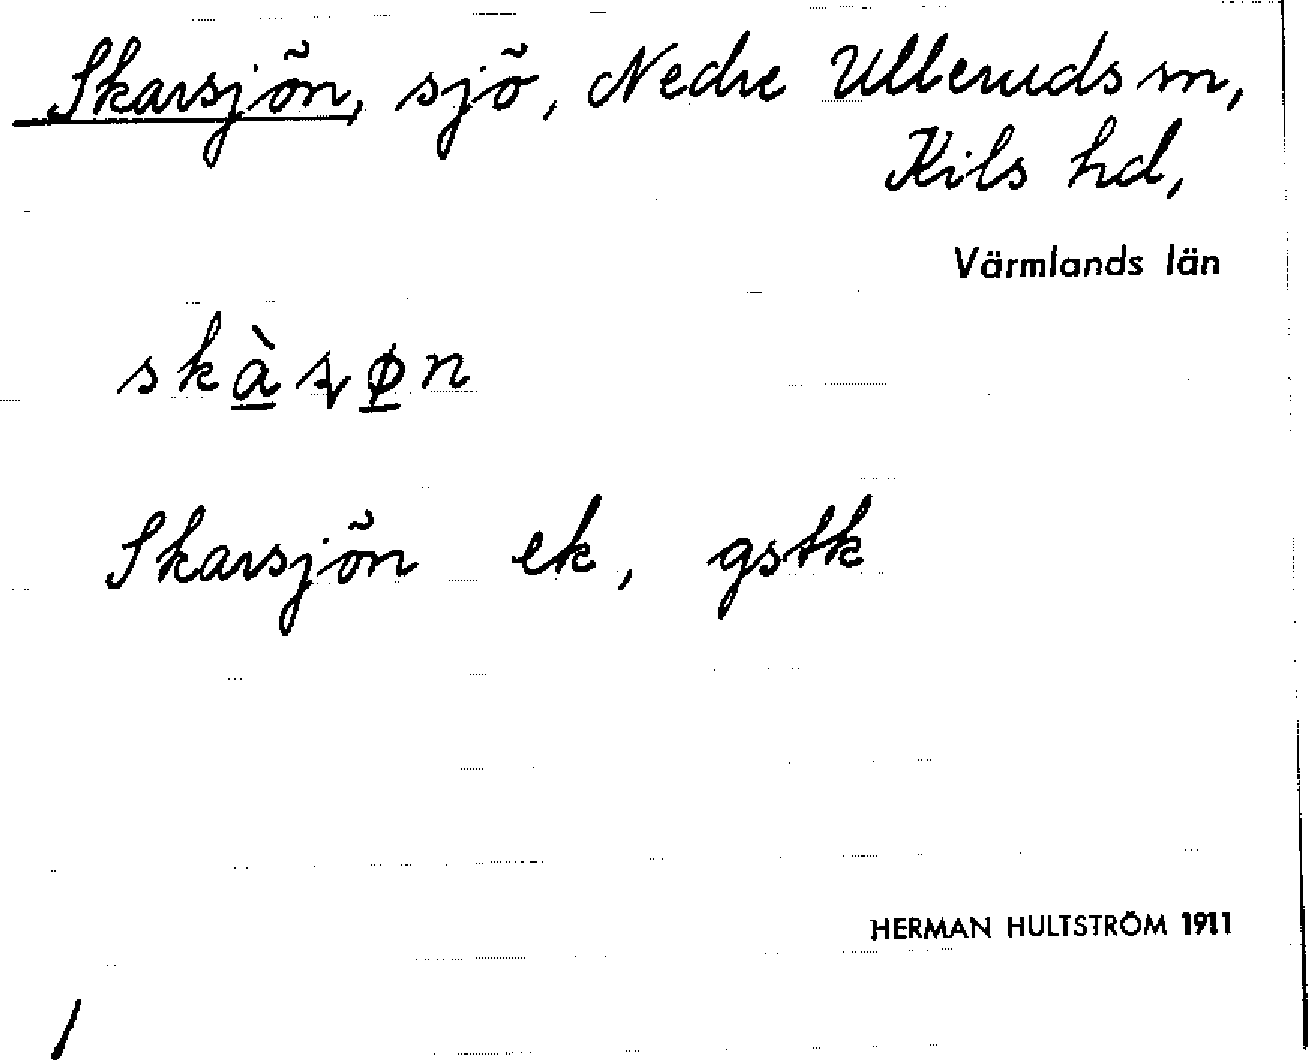 Skarsjön, sjö, Nedre Ulleruds sn,
Kils hd,
Värmlands län
Skarsjön ek, gstk
HERMAN HULTSTRÖM 1911
1